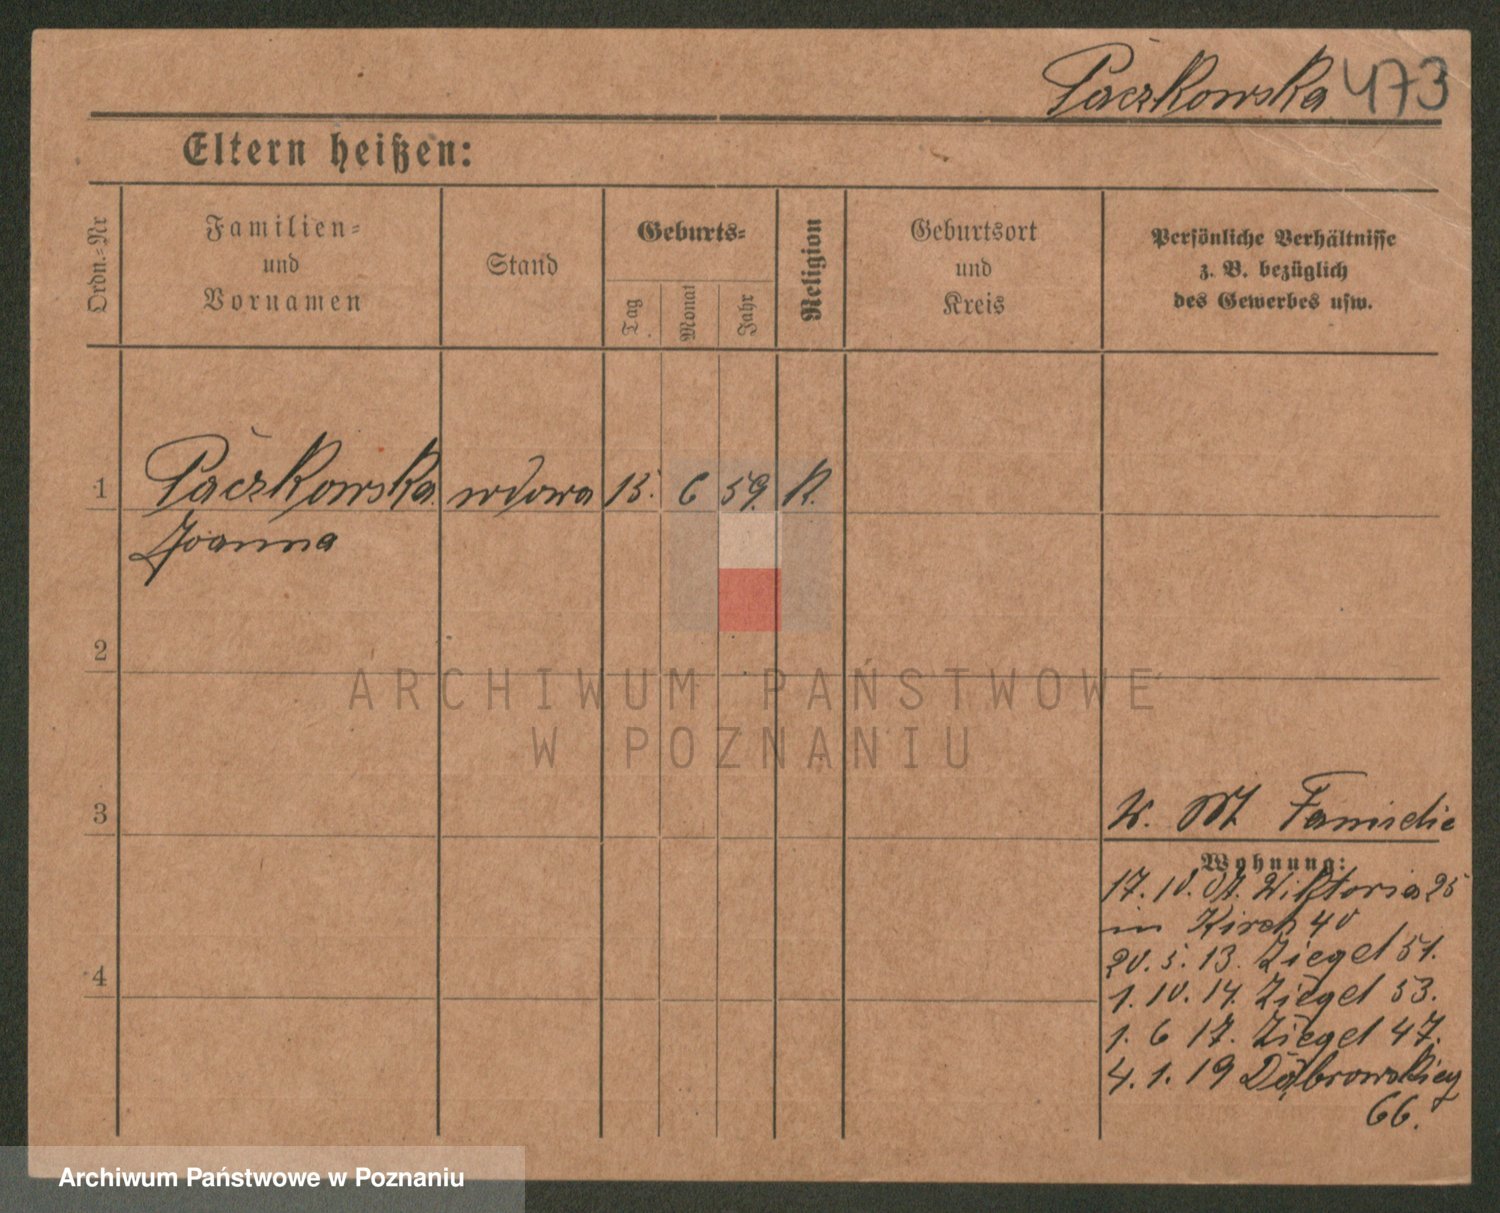 Paczkowska 473
Eltern heißen:
Ordn.-Nr
Familien-
und
Vornamen
Stand
Geburts-
Tag
Monat
Jahr
Religion
Geburtsort
und
Kreis
Persönliche Verhältnisse
z. B. bezüglich
des Gewerbes usw.
1 Paczkowska wdowa 15. 6 59. K.
Joanna
2
ARCHIWUM PAŃSTWOWE
W POZNANIU
3
Familie
Wohnung:
17. 10. 01. Wiktoria 25
in Kirch 40
20. 5. 13. Ziegel 51.
1. 10. 14. Ziegel 53.
1. 6 17. Ziegel 47.
4
4. 1. 19 Dąbrowskiey
66.
Archiwum Państwowe w Poznaniu